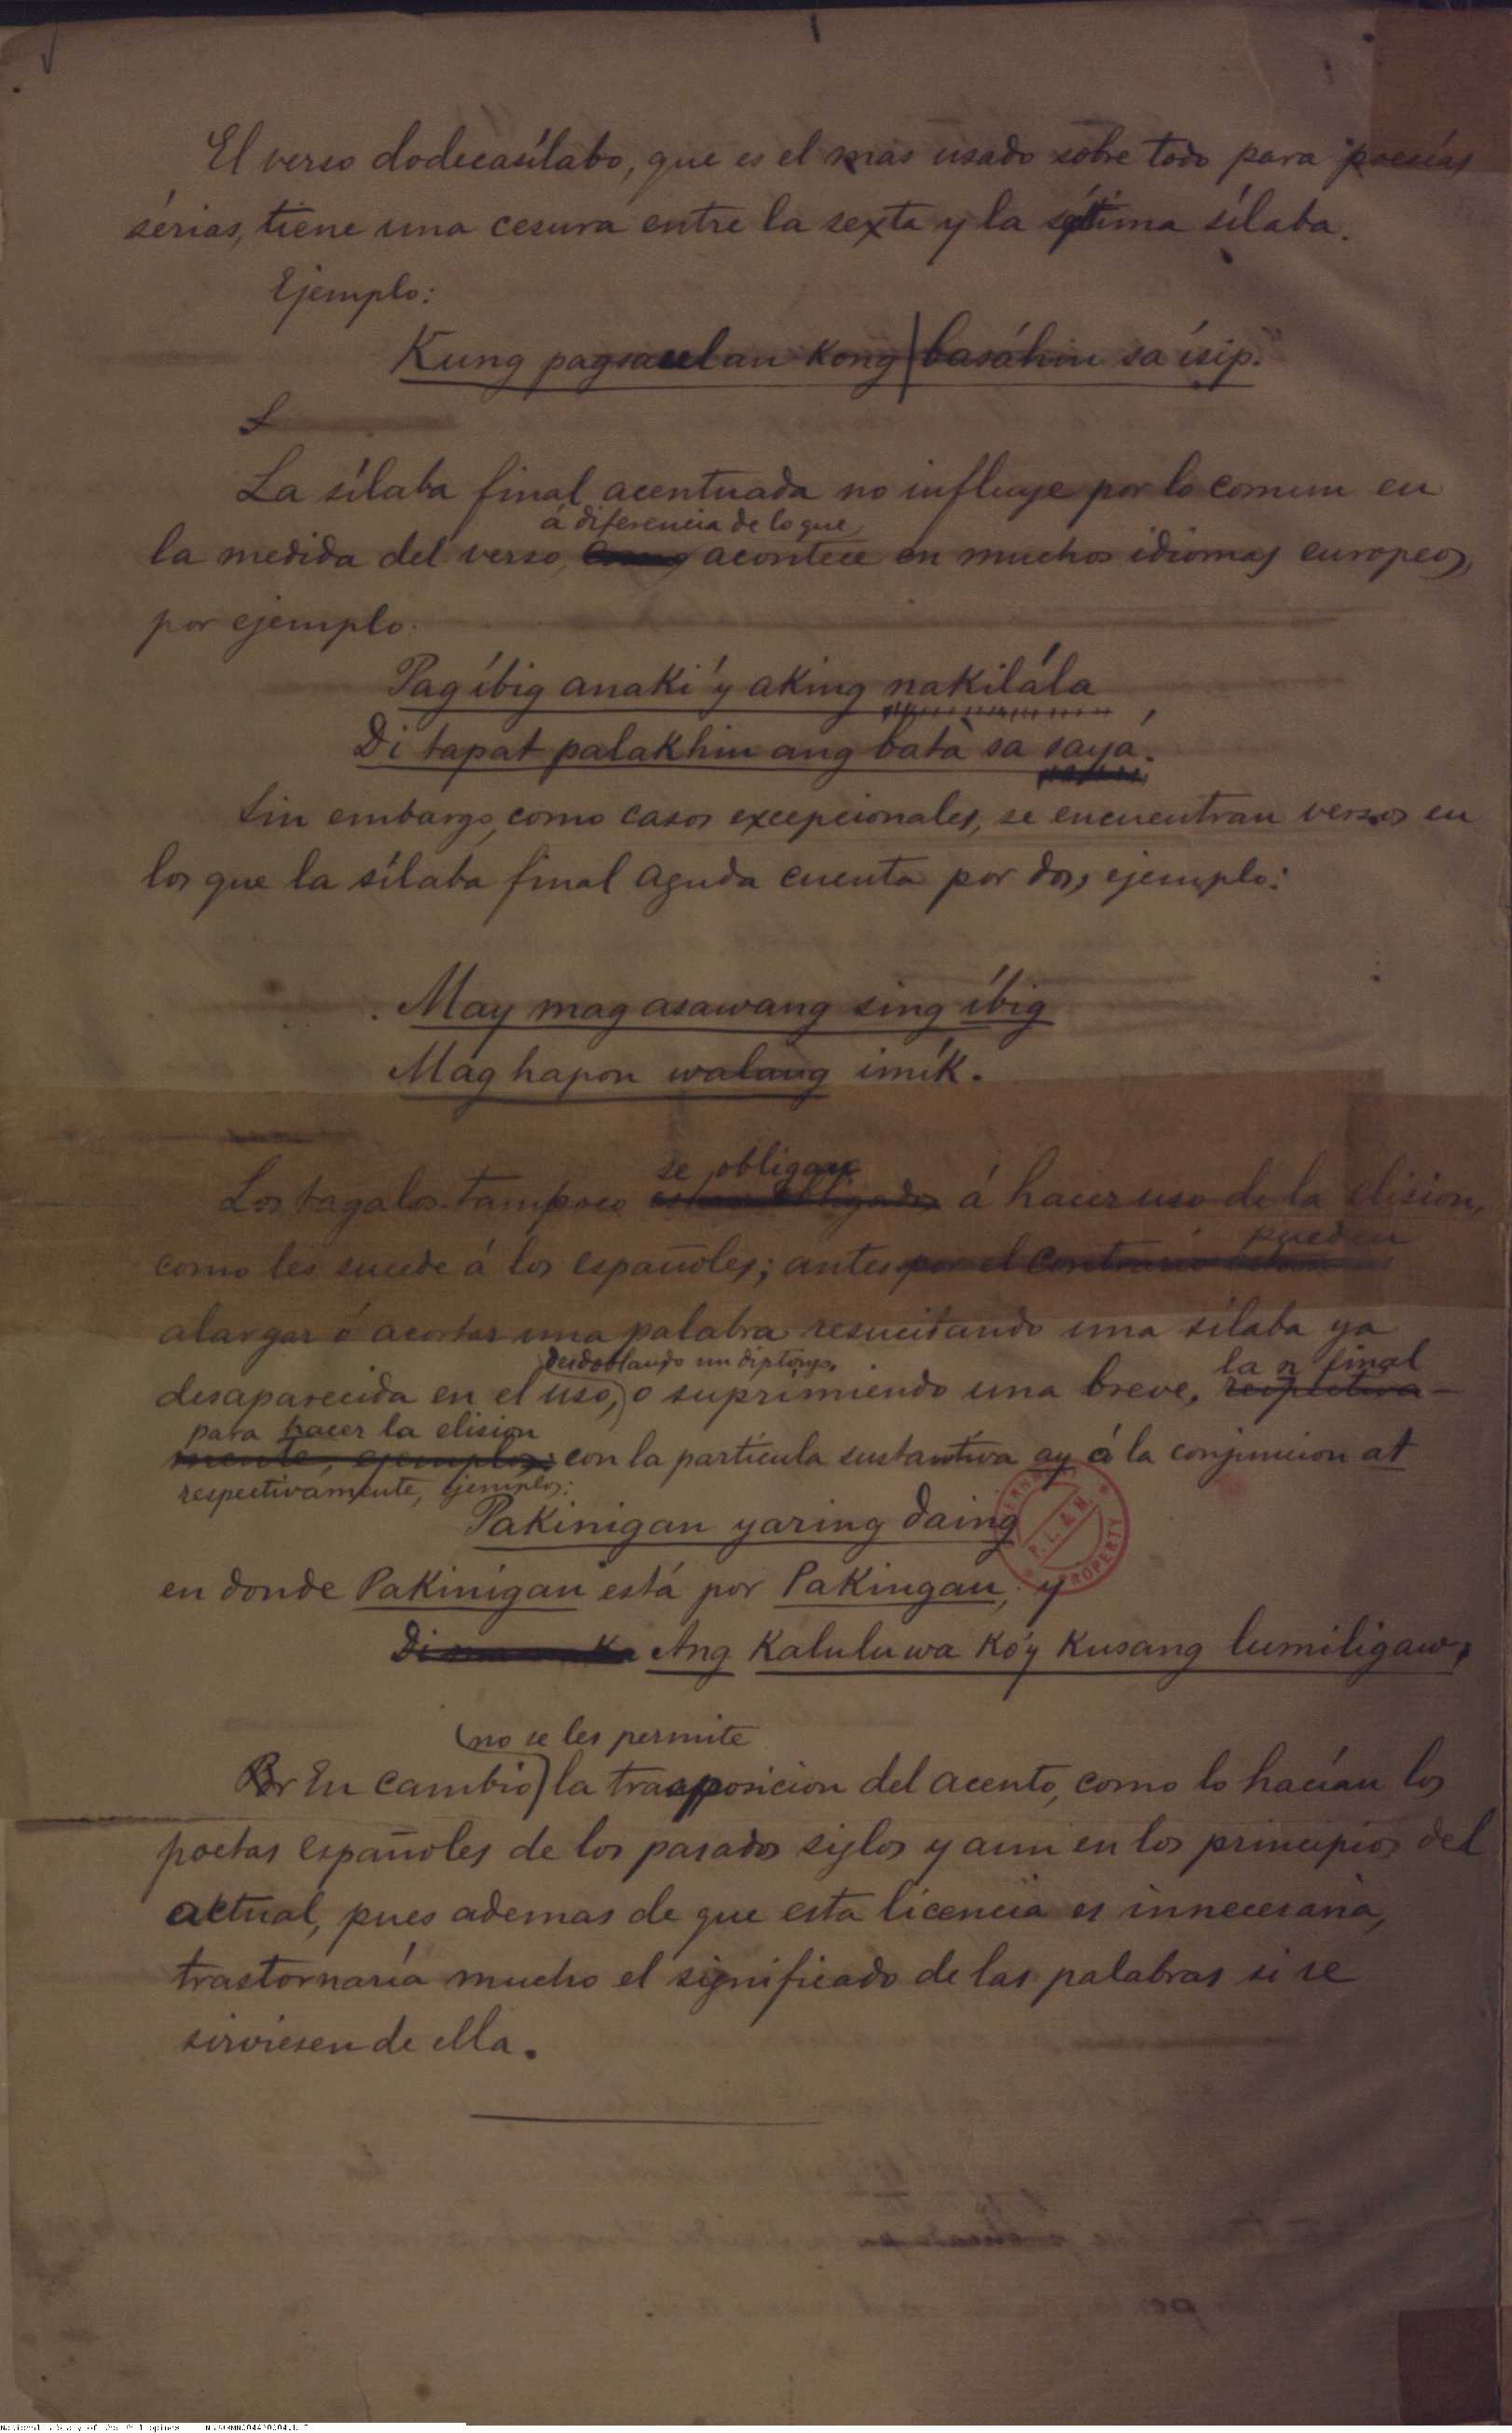 El verso dodecasílabo, que es el mas usado sobre todo para poesías
sérias, tiene una cesura entre la sexta y la sétima sílaba.
Ejemplo:
Kung pagsaulan kong | basáhin sa ísip.
La sílaba final acentuada no influye por lo comun en
á diferencia de lo que
la medida del verso, como acontece en muchos idiomas europeos,
por ejemplo.
Pag íbig anaki'y aking nakilála
Di tapat palakhin ang batà sa sayá.
Sin embargo, como casos excepcionales, se encuentran versos en
los que la sílaba final aguda cuenta por dos, ejemplo:
May mag asawang sing íbig
Mag hapon walang imík.
se obligan
Los tagalos tampoco estan obligados á hacer uso de la elision,
pueden
como les sucede á los españoles; antes por el contrario
alargar ó acortar una palabra resucitando una sílaba ya
desdoblando un diptongo, la n final
desaparecida en el uso, o suprimiendo una breve,
para hacer la elision
mente, ejemplos: con la partícula sustantiva ay ó la conjuncion at
respectivamente, ejemplos:
Pakinigan yaring daing
en donde Pakinigan está por Pakingan, y
Ang kaluluwa ko'y kusang lumiligaw,
no se les permite
En cambio la trasposicion del acento, como lo hacían los
poetas españoles de los pasados siglos y aun en los principios del
actual, pues ademas de que esta licencia es innecesaria,
trastornaría mucho el significado de las palabras si se
sirviesen de ella.
P. L. & M.
PROPERTY